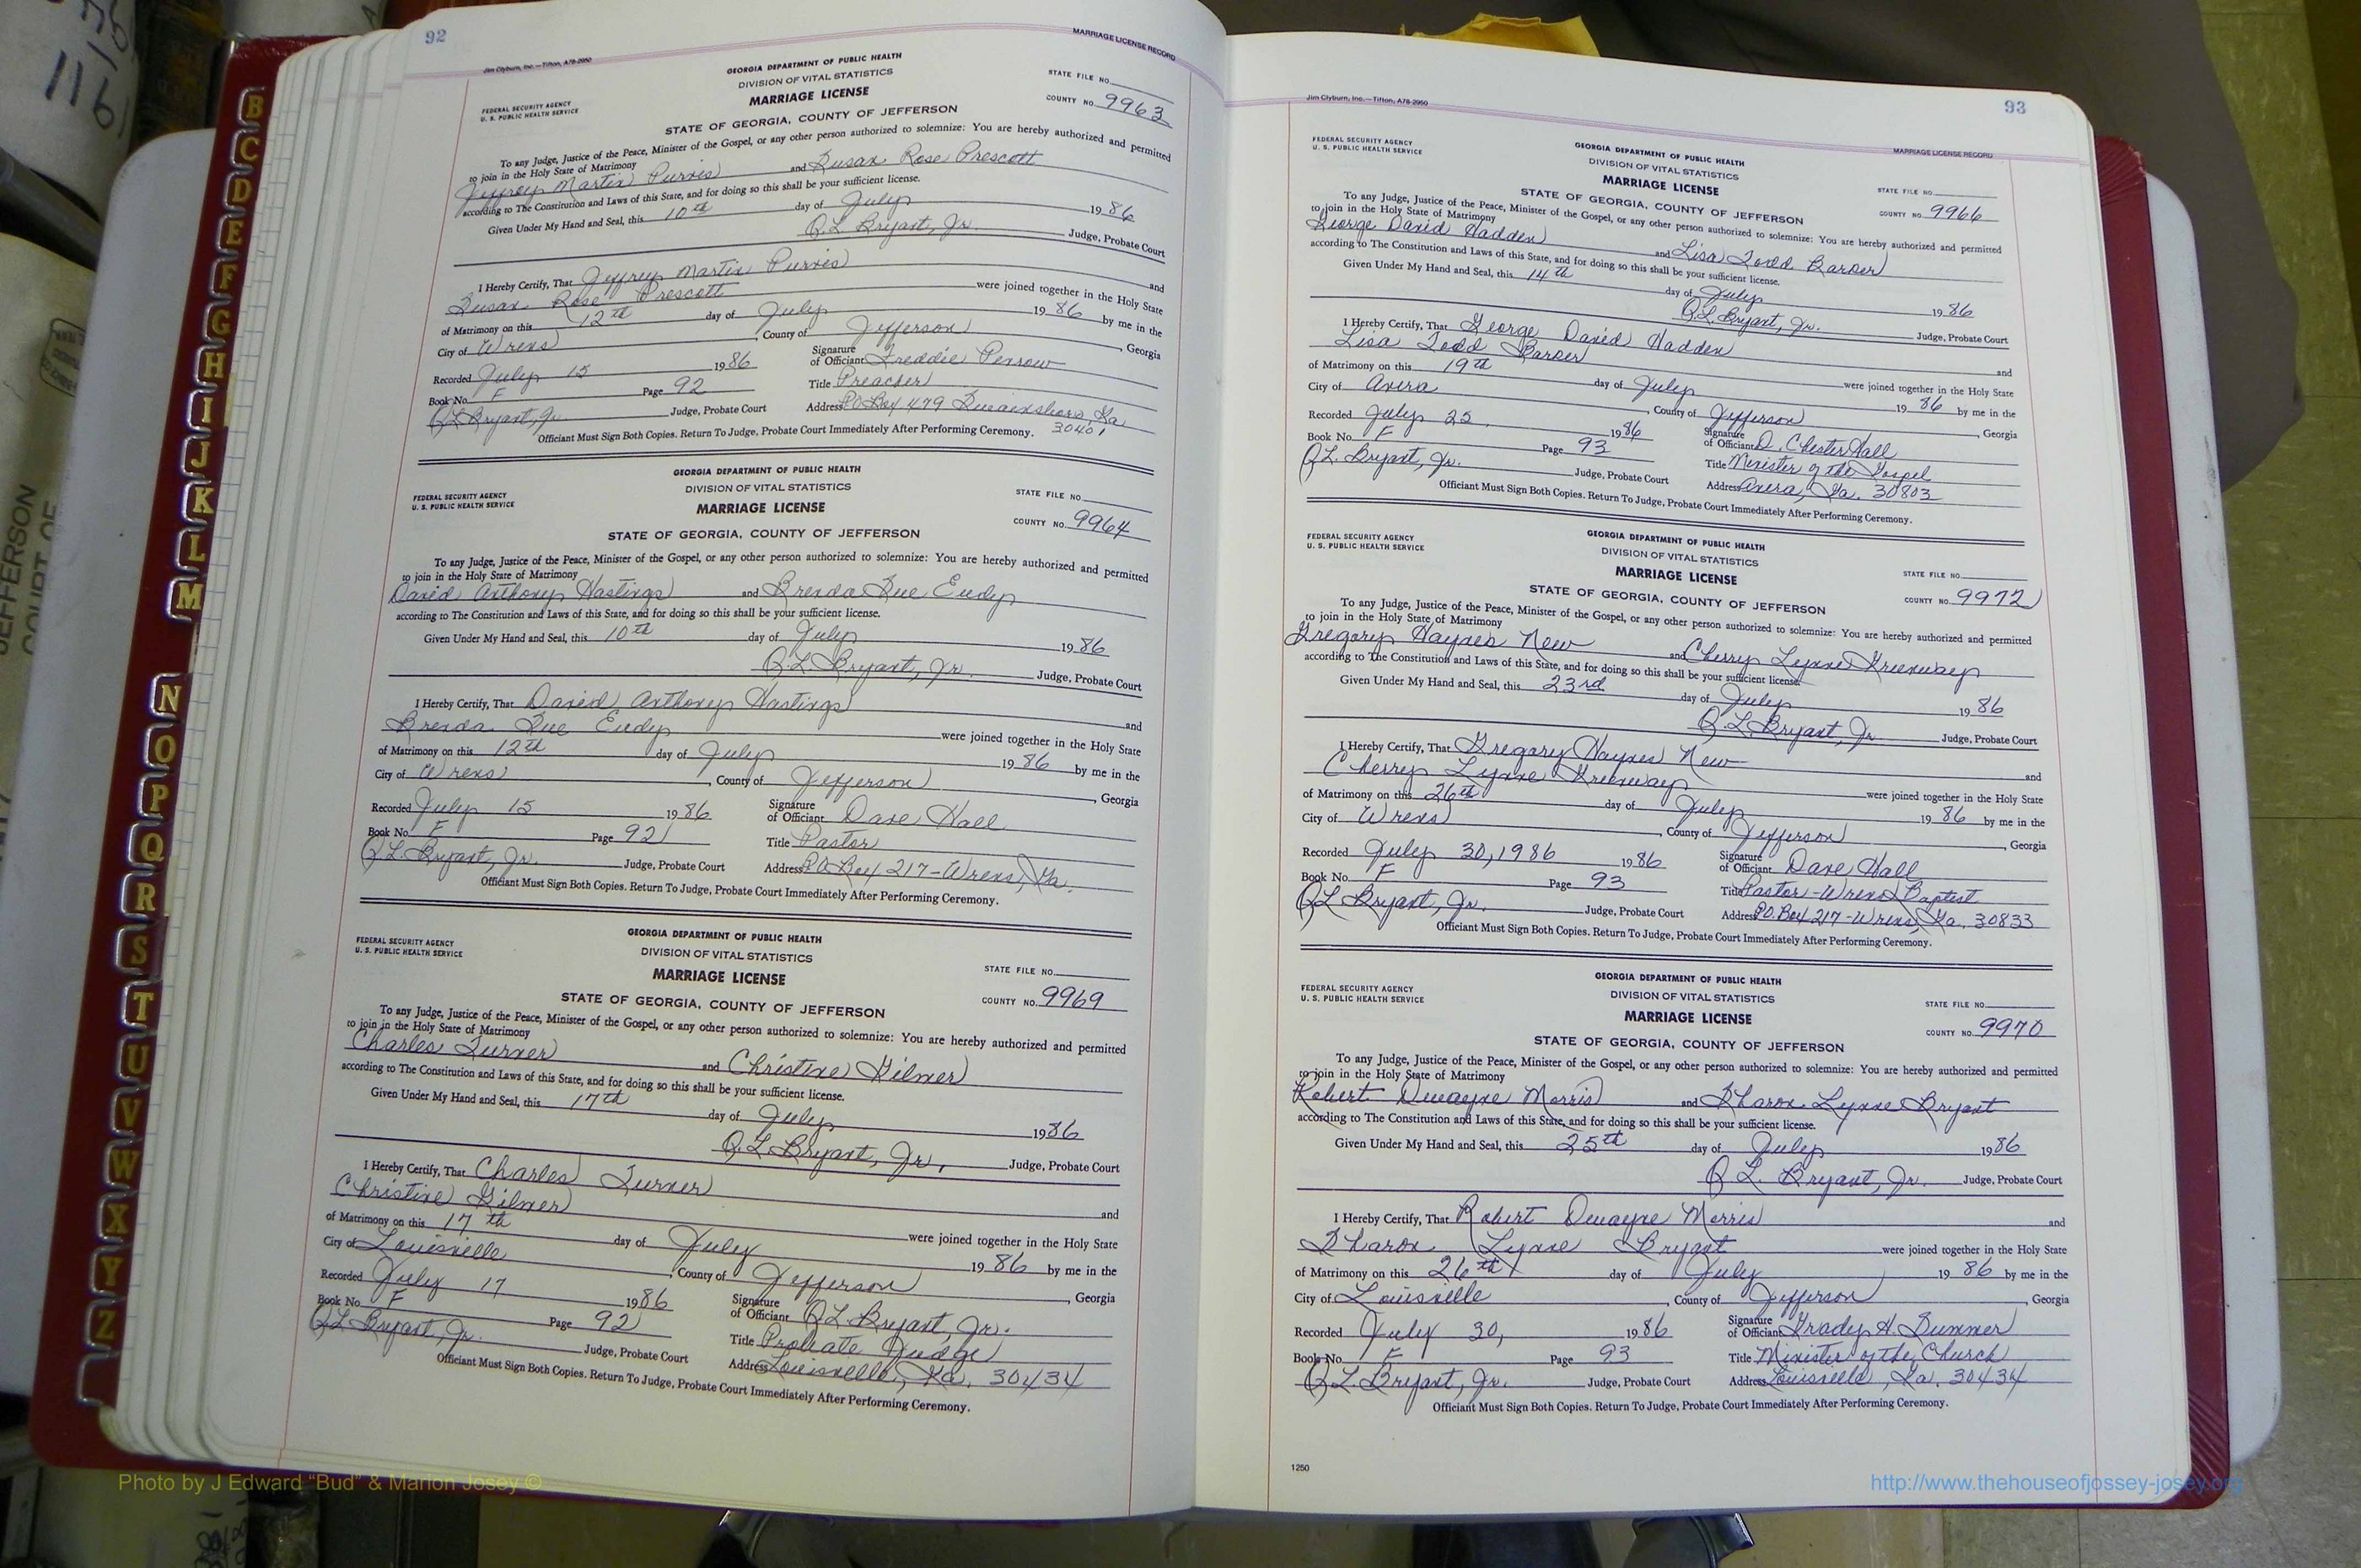 92
Jim Clyburn, Inc.—Tifton, A78-2950
MARRIAGE LICENSE RECORD
GEORGIA DEPARTMENT OF PUBLIC HEALTH
DIVISION OF VITAL STATISTICS
MARRIAGE LICENSE
STATE OF GEORGIA, COUNTY OF JEFFERSON
FEDERAL SECURITY AGENCY
U. S. PUBLIC HEALTH SERVICE
STATE FILE NO.
COUNTY NO. 9963
To any Judge, Justice of the Peace, Minister of the Gospel, or any other person authorized to solemnize: You are hereby authorized and permitted
to join in the Holy State of Matrimony
Jeffrey Martin Purvis and Susan Rose Prescott
according to The Constitution and Laws of this State, and for doing so this shall be your sufficient license.
Given Under My Hand and Seal, this 10th day of July 1986
Q.L. Bryant, Jr. Judge, Probate Court
I Hereby Certify, That Jeffrey Martin Purvis and
Susan Rose Prescott were joined together in the Holy State
of Matrimony on this 12th day of July 1986 by me in the
City of Wrens, County of Jefferson, Georgia
Recorded July 15 1986 Signature of Officiant Freddie Perrow
Book No. F Page 92 Title Preacher
Q.L. Bryant, Jr. Judge, Probate Court Address P.O. Box 479 Swainsboro, Ga
30401
Officiant Must Sign Both Copies. Return To Judge, Probate Court Immediately After Performing Ceremony.
GEORGIA DEPARTMENT OF PUBLIC HEALTH
DIVISION OF VITAL STATISTICS
MARRIAGE LICENSE
STATE OF GEORGIA, COUNTY OF JEFFERSON
FEDERAL SECURITY AGENCY
U. S. PUBLIC HEALTH SERVICE
STATE FILE NO.
COUNTY NO. 9964
To any Judge, Justice of the Peace, Minister of the Gospel, or any other person authorized to solemnize: You are hereby authorized and permitted
to join in the Holy State of Matrimony
David Anthony Hastings and Brenda Sue Eudy
according to The Constitution and Laws of this State, and for doing so this shall be your sufficient license.
Given Under My Hand and Seal, this 10th day of July 1986
Q.L. Bryant, Jr. Judge, Probate Court
I Hereby Certify, That David Anthony Hastings and
Brenda Sue Eudy were joined together in the Holy State
of Matrimony on this 12th day of July 1986 by me in the
City of Wrens, County of Jefferson, Georgia
Recorded July 15 1986 Signature of Officiant Dave Hall
Book No. F Page 92 Title Pastor
Q.L. Bryant, Jr. Judge, Probate Court Address P.O. Box 217-Wrens, Ga.
Officiant Must Sign Both Copies. Return To Judge, Probate Court Immediately After Performing Ceremony.
GEORGIA DEPARTMENT OF PUBLIC HEALTH
DIVISION OF VITAL STATISTICS
MARRIAGE LICENSE
STATE OF GEORGIA, COUNTY OF JEFFERSON
FEDERAL SECURITY AGENCY
U. S. PUBLIC HEALTH SERVICE
STATE FILE NO.
COUNTY NO. 9969
To any Judge, Justice of the Peace, Minister of the Gospel, or any other person authorized to solemnize: You are hereby authorized and permitted
to join in the Holy State of Matrimony
Charles Turner and Christine Gilmer
according to The Constitution and Laws of this State, and for doing so this shall be your sufficient license.
Given Under My Hand and Seal, this 17th day of July 1986
Q.L. Bryant, Jr. Judge, Probate Court
I Hereby Certify, That Charles Turner and
Christine Gilmer were joined together in the Holy State
of Matrimony on this 17th day of July 1986 by me in the
City of Louisville, County of Jefferson, Georgia
Recorded July 17 1986 Signature of Officiant Q.L. Bryant, Jr.
Book No. F Page 92 Title Probate Judge
Q.L. Bryant, Jr. Judge, Probate Court Address Louisville, Ga. 30434
Officiant Must Sign Both Copies. Return To Judge, Probate Court Immediately After Performing Ceremony.
93
Jim Clyburn, Inc.—Tifton, A78-2950
MARRIAGE LICENSE RECORD
FEDERAL SECURITY AGENCY
U. S. PUBLIC HEALTH SERVICE
GEORGIA DEPARTMENT OF PUBLIC HEALTH
DIVISION OF VITAL STATISTICS
MARRIAGE LICENSE
STATE OF GEORGIA, COUNTY OF JEFFERSON
STATE FILE NO.
COUNTY NO. 9966
To any Judge, Justice of the Peace, Minister of the Gospel, or any other person authorized to solemnize: You are hereby authorized and permitted
to join in the Holy State of Matrimony
George David Hadden and Lisa Todd Barber
according to The Constitution and Laws of this State, and for doing so this shall be your sufficient license.
Given Under My Hand and Seal, this 14th day of July 1986
Q.L. Bryant, Jr. Judge, Probate Court
I Hereby Certify, That George David Hadden and
Lisa Todd Barber were joined together in the Holy State
of Matrimony on this 19th day of July 1986 by me in the
City of Avera, County of Jefferson, Georgia
Recorded July 25, 1986 Signature of Officiant D. Chester Hall
Book No. F Page 93 Title Minister of the Gospel
Q.L. Bryant, Jr. Judge, Probate Court Address Avera, Ga. 30803
Officiant Must Sign Both Copies. Return To Judge, Probate Court Immediately After Performing Ceremony.
FEDERAL SECURITY AGENCY
U. S. PUBLIC HEALTH SERVICE
GEORGIA DEPARTMENT OF PUBLIC HEALTH
DIVISION OF VITAL STATISTICS
MARRIAGE LICENSE
STATE OF GEORGIA, COUNTY OF JEFFERSON
STATE FILE NO.
COUNTY NO. 9972
To any Judge, Justice of the Peace, Minister of the Gospel, or any other person authorized to solemnize: You are hereby authorized and permitted
to join in the Holy State of Matrimony
Gregory Haynes New and Cherry Lynne Greenway
according to The Constitution and Laws of this State, and for doing so this shall be your sufficient license.
Given Under My Hand and Seal, this 23rd day of July 1986
Q.L. Bryant, Jr. Judge, Probate Court
I Hereby Certify, That Gregory Haynes New and
Cherry Lynne Greenway were joined together in the Holy State
of Matrimony on this 26th day of July 1986 by me in the
City of Wrens, County of Jefferson, Georgia
Recorded July 30, 1986 1986 Signature of Officiant Dave Hall
Book No. F Page 93 Title Pastor-Wrens Baptist
Q.L. Bryant, Jr. Judge, Probate Court Address P.O. Box 217-Wrens, Ga. 30833
Officiant Must Sign Both Copies. Return To Judge, Probate Court Immediately After Performing Ceremony.
FEDERAL SECURITY AGENCY
U. S. PUBLIC HEALTH SERVICE
GEORGIA DEPARTMENT OF PUBLIC HEALTH
DIVISION OF VITAL STATISTICS
MARRIAGE LICENSE
STATE OF GEORGIA, COUNTY OF JEFFERSON
STATE FILE NO.
COUNTY NO. 9970
To any Judge, Justice of the Peace, Minister of the Gospel, or any other person authorized to solemnize: You are hereby authorized and permitted
to join in the Holy State of Matrimony
Robert Dwayne Morris and Sharon Lynne Bryant
according to The Constitution and Laws of this State, and for doing so this shall be your sufficient license.
Given Under My Hand and Seal, this 25th day of July 1986
Q.L. Bryant, Jr. Judge, Probate Court
I Hereby Certify, That Robert Dwayne Morris and
Sharon Lynne Bryant were joined together in the Holy State
of Matrimony on this 26th day of July 1986 by me in the
City of Louisville, County of Jefferson, Georgia
Recorded July 30, 1986 Signature of Officiant Grady H. Sumner
Book No. F Page 93 Title Minister of the Church
Q.L. Bryant, Jr. Judge, Probate Court Address Louisville, Ga. 30434
Officiant Must Sign Both Copies. Return To Judge, Probate Court Immediately After Performing Ceremony.
1250
B
C
D
E
F
G
H
I
J
K
L
M
N
O
P
Q
R
S
T
U
V
W
X
Y
Z
JEFFERSON
COURT OF
Photo by J Edward “Bud” & Marion Josey ©
http://www.thehouseofjossey-josey.org